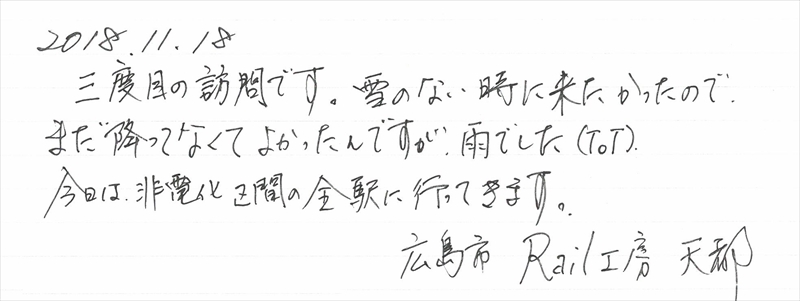 2018.11.18
三度目の訪問です。雪のない時に来たかったので、
まだ降ってなくてよかったんですが、雨でした(ToT).
今日は、非電化区間の全駅に行ってきます。
広島市 Rail工房 天都